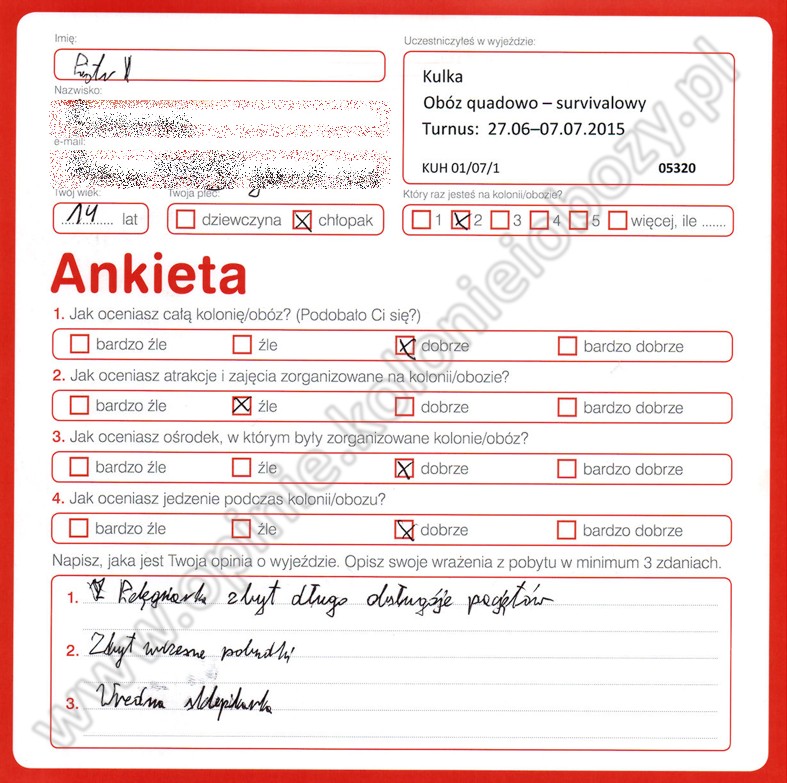 Imię:
Uczestniczyłeś w wyjeździe:
Piotr
Kulka
Obóz quadowo – survivalowy
Turnus: 27.06–07.07.2015
KUH 01/07/1 05320
Nazwisko:
e-mail:
Twój wiek:
Twoja płeć:
Który raz jesteś na kolonii/obozie?
14 lat
dziewczyna chłopak
1 2 3 4 5 więcej, ile .......
Ankieta
1. Jak oceniasz całą kolonię/obóz? (Podobało Ci się?)
bardzo źle źle dobrze bardzo dobrze
2. Jak oceniasz atrakcje i zajęcia zorganizowane na kolonii/obozie?
bardzo źle źle dobrze bardzo dobrze
3. Jak oceniasz ośrodek, w którym były zorganizowane kolonie/obóz?
bardzo źle źle dobrze bardzo dobrze
4. Jak oceniasz jedzenie podczas kolonii/obozu?
bardzo źle źle dobrze bardzo dobrze
Napisz, jaka jest Twoja opinia o wyjeździe. Opisz swoje wrażenia z pobytu w minimum 3 zdaniach.
1. Pielęgniarka zbyt długo obsługóje pacjętów
2. Zbyt wczesne pobudki
3. Wredna sklepikarka
www.opinie.kolonieiobozy.pl